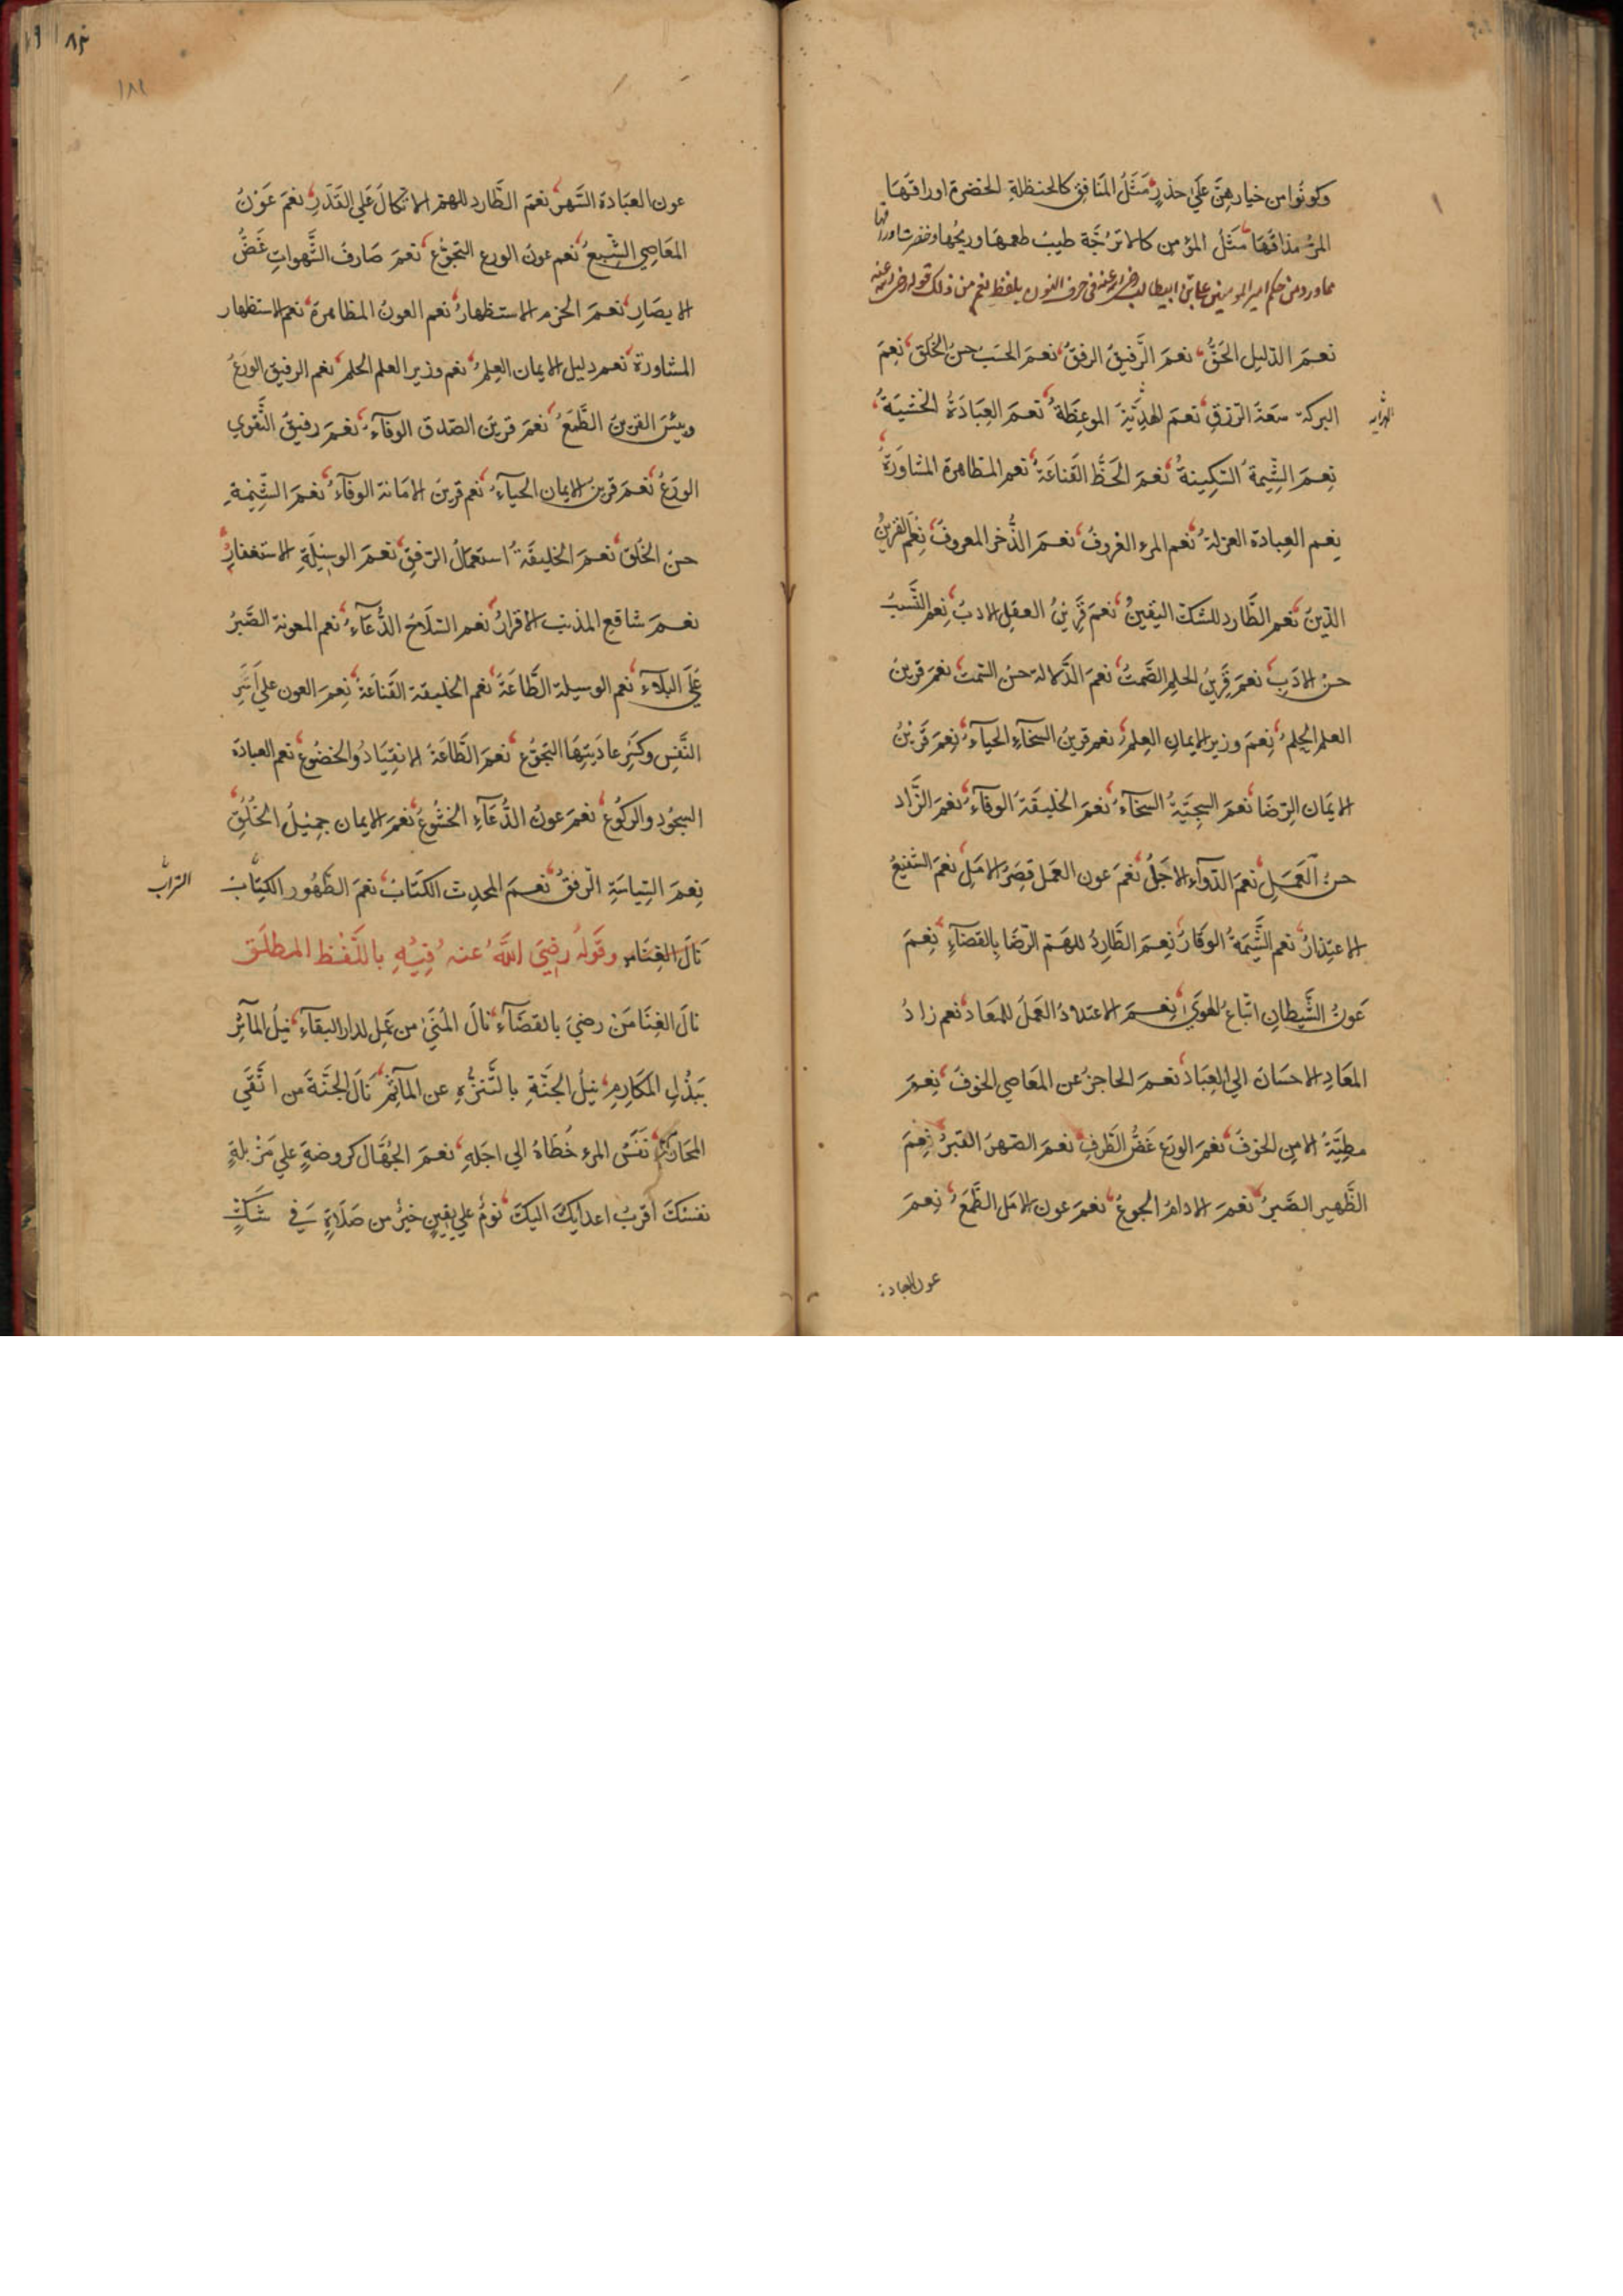 وكونُوا من خيارهنَّ عَلَى حذرٍ مَثَلُ المنَافقِ كالحنظلةِ الخضرة اوراقهَا
المرُّ مذاقهَا مَثَلُ المؤمن كالاترُجَّة طيبٌ طعمهَا وريحُها وخضرت اوراقها
مماورد من حكم امير المومنين علي بن ابيطالب رضي الله عنه في حرف النون بلفظ نعم من ذلك قوله رضي الله عنه
نعمَ الدّليل الحَقُّ نعمَ الرَّفيقُ الرفقُ نعمَ الحسَبُ حسنُ الخُلق نِعمَ
البركة سعَة الرّزقِ نعمَ الهدِيّة الموعِظَةُ نعمَ العِبَادَةُ الخَشيَةُ
الهداية
نِعمَ الشِّيمةُ السَّكِينةُ نعمَ الحَظُّ القَناعَةُ نعم المظاهرة المشاوَرَةُ
نِعم العِبادة العزلةُ نعم المرء الغروفُ نعمَ الذُّخر المعروفُ نِعْم القرينُ
الدّينُ نعم الطَّارد للشكّ اليَقينُ نعمَ قَرِينُ العقلِ الادبُ نِعم النَّسبُ
حسنُ الادَبِ نعمَ قَرِينُ الحلمِ الصَّمتُ نعمَ الدَّلالة حسنُ السَّمت نعمَ قرينُ
العلم الحِلمُ نِعمَ وزير الايمانِ العِلمُ نعم قرينُ السّخاءِ الحيآءُ نِعمَ قَرِينُ
الايمَان الرِّضَا نعمَ السجِيَّةُ السّخآءُ نعمَ الخليقَةُ الوفآءُ نعمَ الزَّاد
حسنُ العَمَلِ نعمَ الدّوآء الاجَلُ نعْمَ عون العَمل قصَرُ الامَلِ نعمَ الشفيعُ
الاعتِذارُ نعم الشِّيمَةُ الوَقارُ نِعمَ الطَّارِدُ للهَمّ الرّضَا بالقضَآءِ نِعمَ
عَونُ الشَّيطانِ اتّباعُ الهوَى نِعمَ الاعتدادُ العَملُ للمعَاد نعم زادُ
المعَادِ الاحسَانُ الي العِبَاد نعمَ الحَاجزُ عن المعَاصي الخوفُ نِعمَ
مطِيَّةُ الامنِ الخوفُ نعمَ الورَع غَضُّ الطَّرفِ نعمَ الصّهرُ القبرُ نِعمَ
الظَّهير الصَّبرُ نعمَ الادامُ الجوعُ نعمَ عون الامَل الطَّمعُ نِعمَ
عون العبادة
عون العبَادة السَّهرُ نعمَ الطَّارد للهمّ الاتّكالُ عَلي القَدَرِ نعمَ عَونُ
المعَاصِي الشِّبعُ نعم عونُ الورع التجوّعُ نعمَ صَارفُ الشَّهواتِ غَضُّ
الابصَارِ نعمَ الحزم الاستظهارُ نعم العونُ المظاهرة نعم الاستظهار
المشاورة نعم دليل الايمان العلمُ نعم وزير العلم الحلمُ نعم الرفيق الورَعُ
وبئسَ القرينُ الطَّمَعُ نعمَ قرينُ الصّدق الوفآءُ نعمَ رفيقُ التَّقوي
الورَعُ نعمَ قرينُ الايمان الحيآءُ نعم قرينُ الامَانة الوفآءُ نعمَ الشِّيْمةِ
حسنُ الخُلق نعمَ الخليقَةُ استعمَالُ الرّفقِ نعمَ الوسِيلَةِ الاستغفارُ
نعمَ شافع المذنب الاقرارُ نعم السّلَاحُ الدُّعآءُ نعم المعونة الصَّبرُ
عَلَى البلآءِ نعم الوسيلة الطَّاعَةُ نعم الخليقة القَناعَةُ نِعمَ العون علي اَسْرِ
النَّفسِ وكَسْرِ عاديتِهَا التجوّعُ نعمَ الطَّاعَةُ الانقِيَادُ والخضُوعُ نعم العبادَة
السجُود والركُوعُ نعمَ عونُ الدُّعَآءِ الخشُوعُ نعمَ الايمان جمِيلُ الخُلُقِ
نِعمَ السِّيَاسَةِ الرّفقُ نعمَ المحدِث الكتَابُ نعمَ الطَّهُور الكِتابُ
التراب
نَالَ الغِنَا مر وقَولهُ رضِيَ اللّهُ عنه فِيْهِ باللَّفْظ المطلَق
نالَ الغِنَا مَنْ رضيَ بالقضَآءِ نالَ المُنَى من عَمِل لدار البقآءِ نيلُ المآثِر
بَبذْلِ المكَارِمِ نيلُ الجنَّةِ بالتَّنَزُّهِ عن المآثِمْ نَالَ الجنَّةَ من اتَّقَي
المحَارمَ نَفَسُ المرء خُطَاهُ الي اجَلهِ نعمَ الجُهَّالِ كروضةٍ علي مَزْبلةٍ
نفسُكَ اقرَبُ اعدايكَ اليكَ نومٌ علي يقينٍ خيرٌ من صَلَاةٍ في شَكٍّ